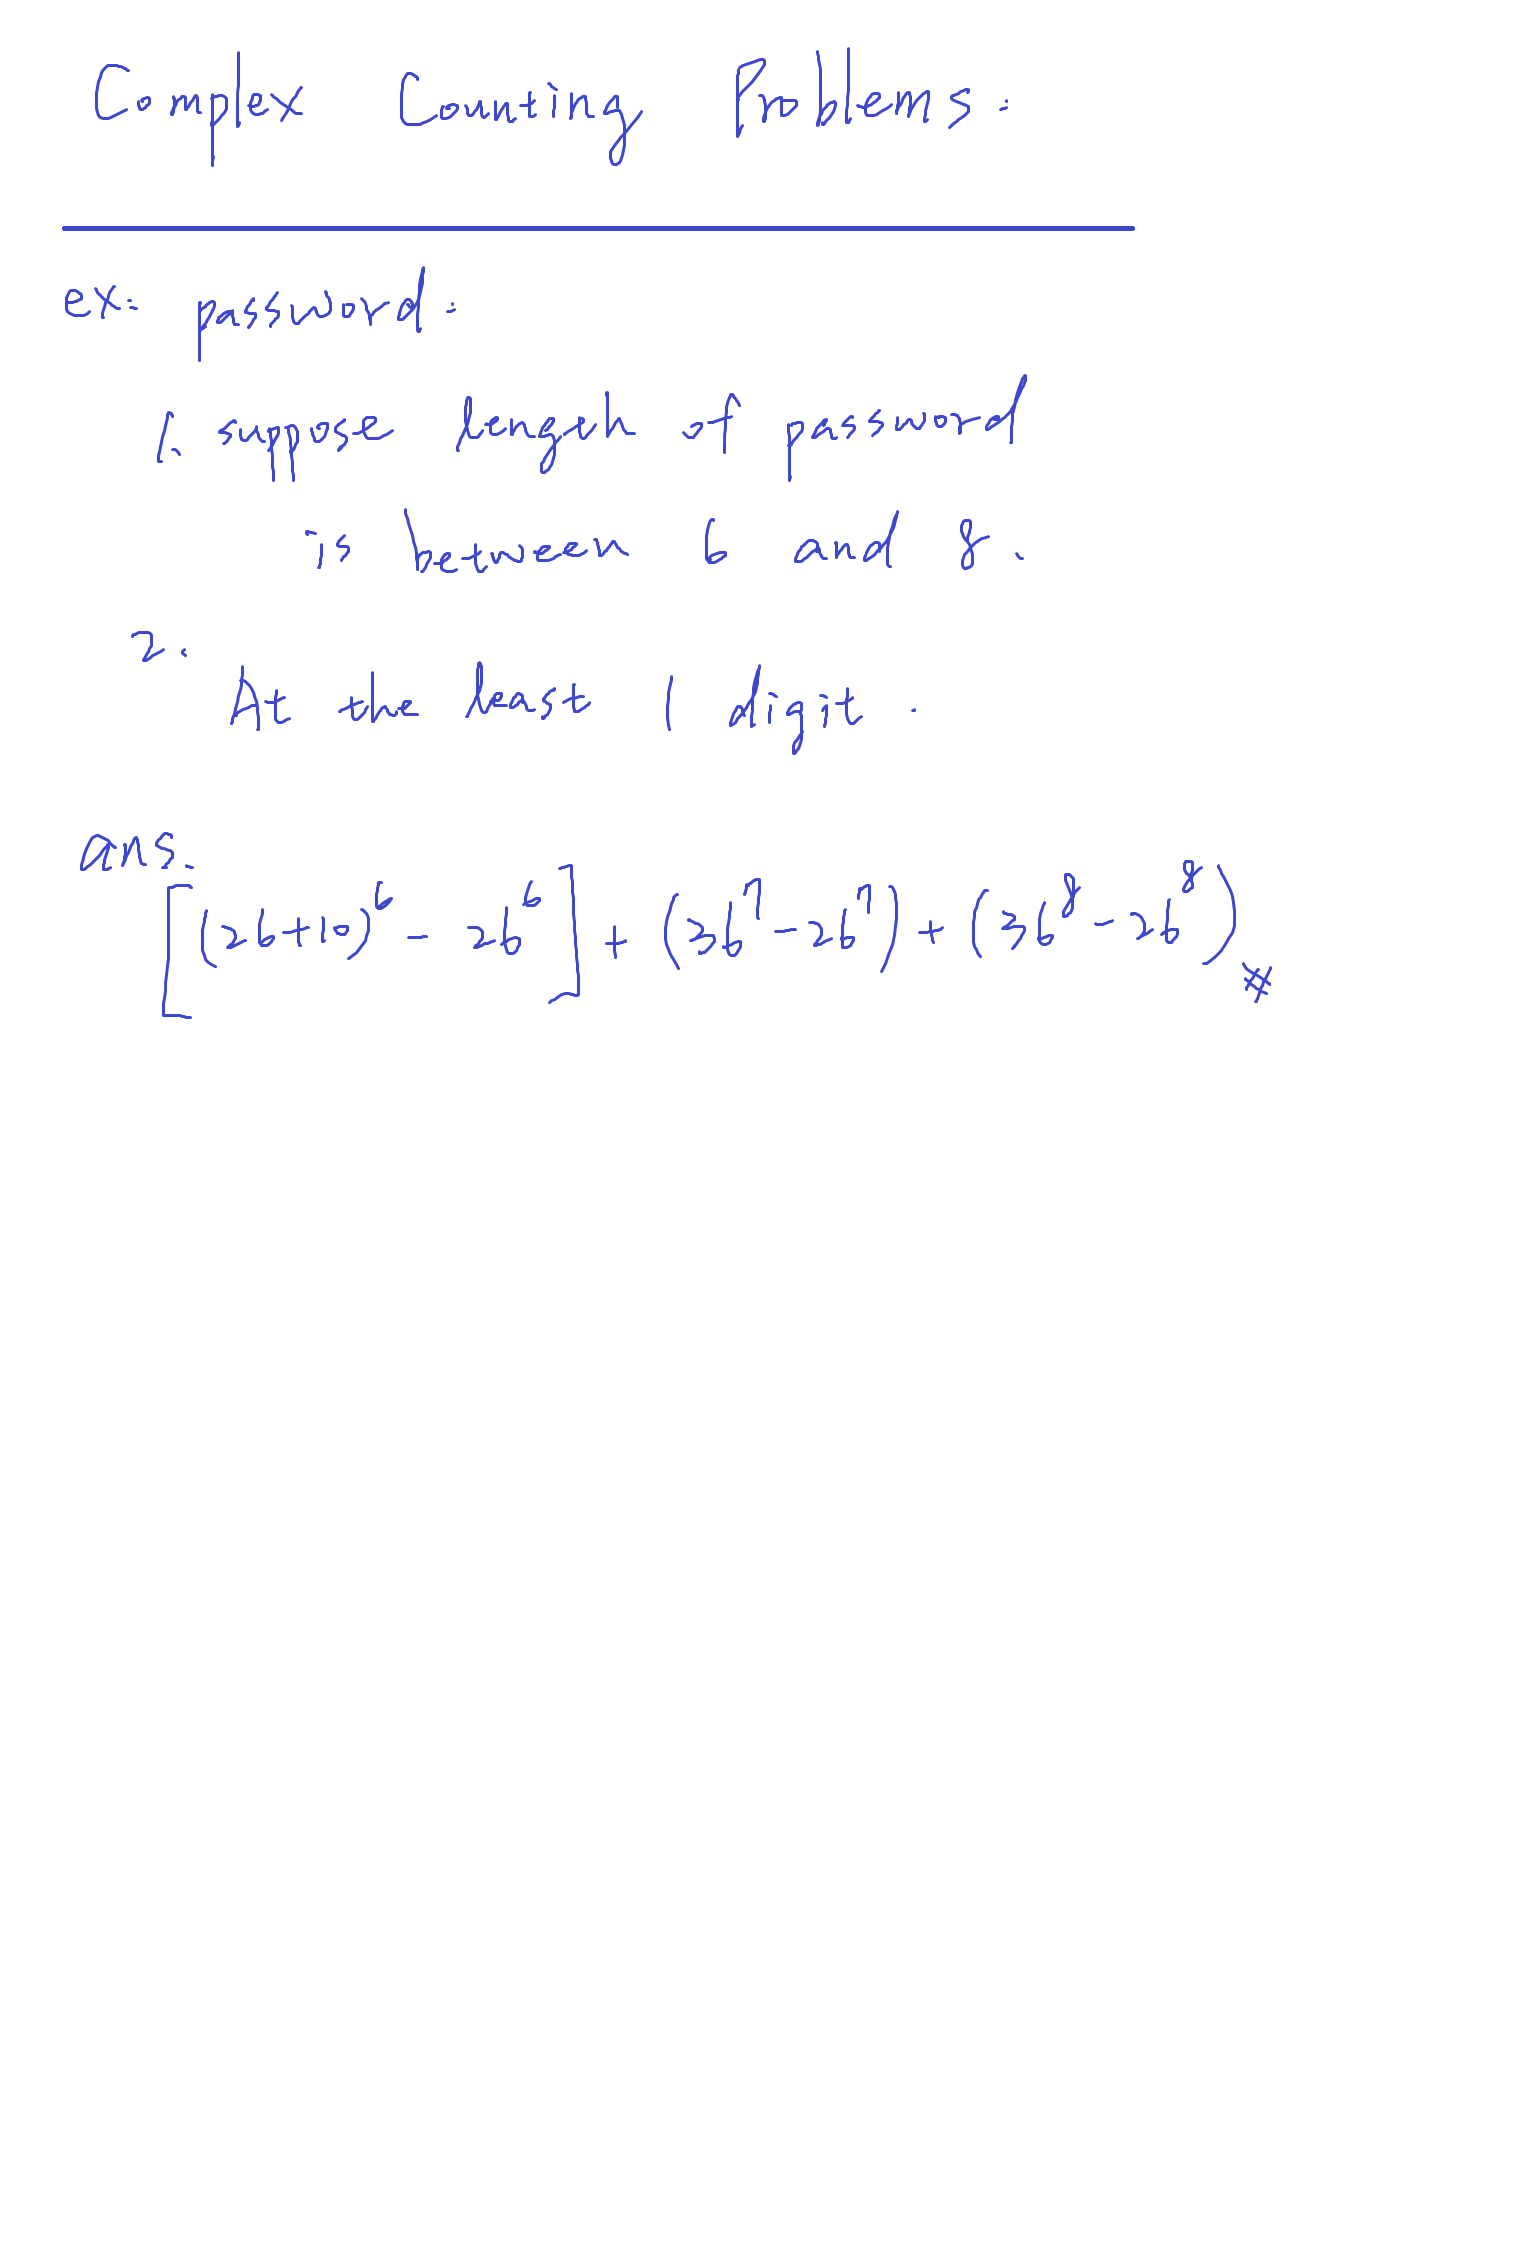 Complex Counting Problems:
ex: password:
1. suppose length of password
is between 6 and 8.
2.
At the least 1 digit.
ans.
[(26+10)^6 - 26^6] + (36^7 - 26^7) + (36^8 - 26^8) #